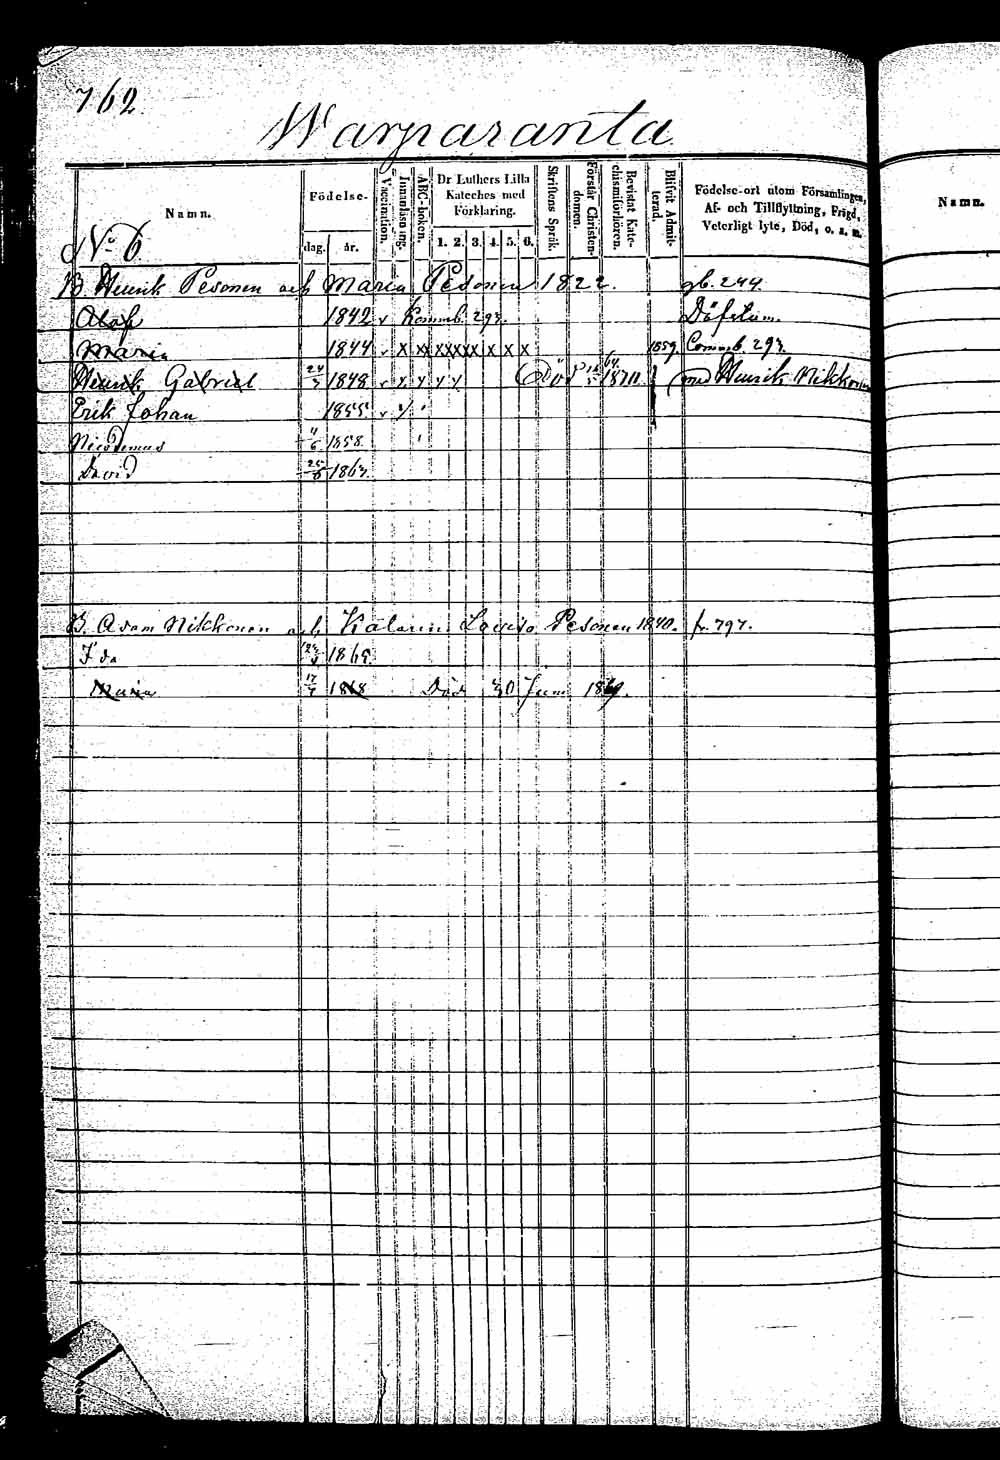 762.
Warparanta
Namn.
Födelse-
dag. år.
Vaccination.
Innanläsning.
ABC-boken.
Dr Luthers Lilla Kateches med Förklaring.
1. 2. 3. 4. 5. 6.
Skriftens Språk.
Förstår Christendomen.
Bevistat Katechismiförhören.
Blifvit Admitterad.
Födelse-ort utom Församlingen, Af- och Tillflyttning, Frigd, Veterligt lyte, Död, o. s. v.
Namn.
No 6.
B. Henrik Pesonen och Maria Pesonen 1822. gb. 244.
Olof 1842 v Kommb. 293. Döfstum.
Maria 1844 v x xx xxxxx x x x 1859. Commb. 293.
Henrik Gabriel 24 1848 v x x x x Död 1870 med Henrik Nikkonen
Erik Johan 1855 v
Nicodemus 1858.
David 25 1863.
B. Adam Nikkonen och Katarin Lovisa Pesonen 1840. fr. 797.
Ida 1865.
Maria 17 1868 Död 30 Juni 1869.